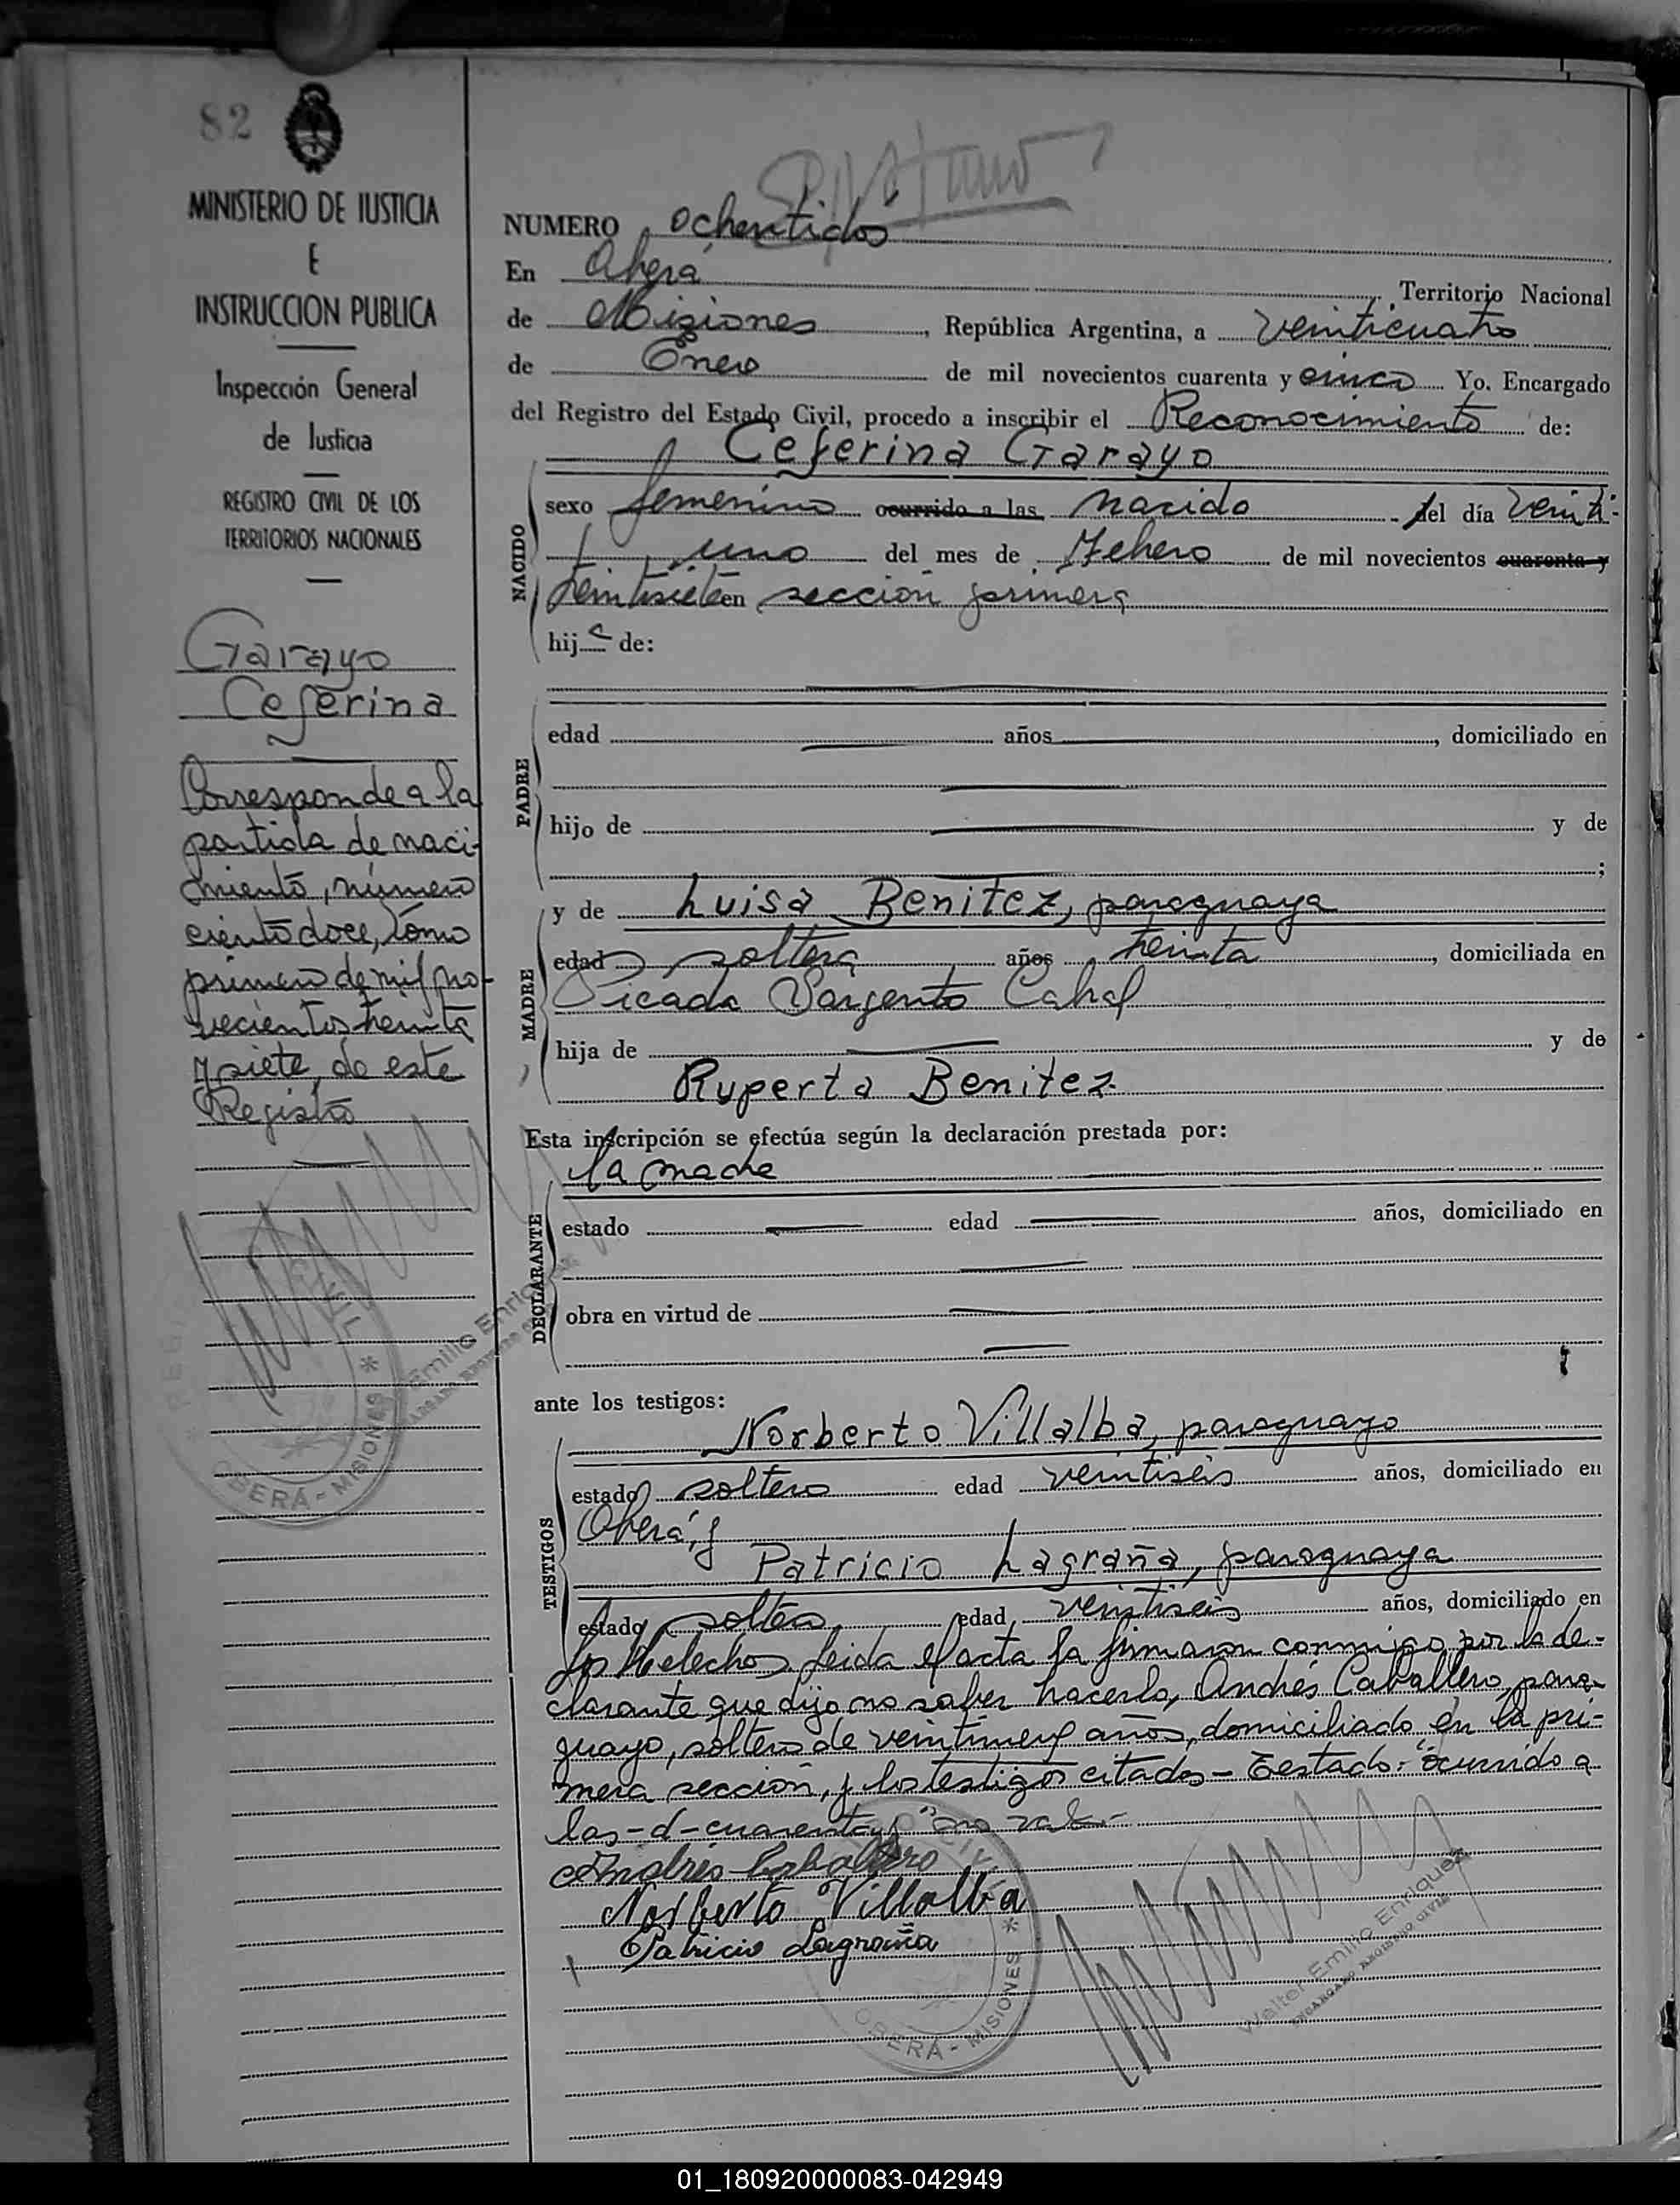 82
MINISTERIO DE JUSTICIA
E
INSTRUCCION PUBLICA
Inspección General
de Justicia
REGISTRO CIVIL DE LOS
TERRITORIOS NACIONALES
Garayo
Ceferina
Corresponde a la
partida de naci-
miento, número
ciento doce, tomo
primero de mil no-
vecientos treinta
y siete, de este
Registro
NUMERO ochentidos
En Oberá Territorio Nacional
de Misiones, República Argentina, a veinticuatro
de Enero de mil novecientos cuarenta y cinco Yo. Encargado
del Registro del Estado Civil, procedo a inscribir el Reconocimiento de:
Ceferina Garayo
NACIDO
sexo femenino ocurrido a las nacido del día veinti-
uno del mes de Febrero de mil novecientos cuarenta y
treintisiete en sección primera
hija de:
PADRE
edad años, domiciliado en
hijo de y de
;
MADRE
y de Luisa Benitez, paraguaya
edad soltera años treinta, domiciliada en
Picada Sargento Cabral
hija de y de
Ruperta Benitez
Esta inscripción se efectúa según la declaración prestada por:
la madre
DECLARANTE
estado edad años, domiciliado en
obra en virtud de
ante los testigos:
TESTIGOS
Norberto Villalba, paraguayo
estado soltero edad veintiseis años, domiciliado en
Oberá, y
Patricio Lagraña, paraguaya
estado soltero edad veintiseis años, domiciliado en
los Helechos. Leida el acta la firmaron conmigo por la de-
clarante que dijo no saber hacerlo, Andrés Caballero, para-
guayo, soltero de veintinueve años, domiciliado en la pri-
mera sección, y los testigos citados - Testado: "ocurrido a
las - d - cuarenta y" no vale.-
Andrés Caballero
Norberto Villalba
Patricio Lagraña
CIVIL
OBERÁ - MISIONES
Emilio Enriquez
OBERÁ - MISIONES
Walter Emilio Enriquez
ENCARGADO REGISTRO CIVIL
01_180920000083-042949